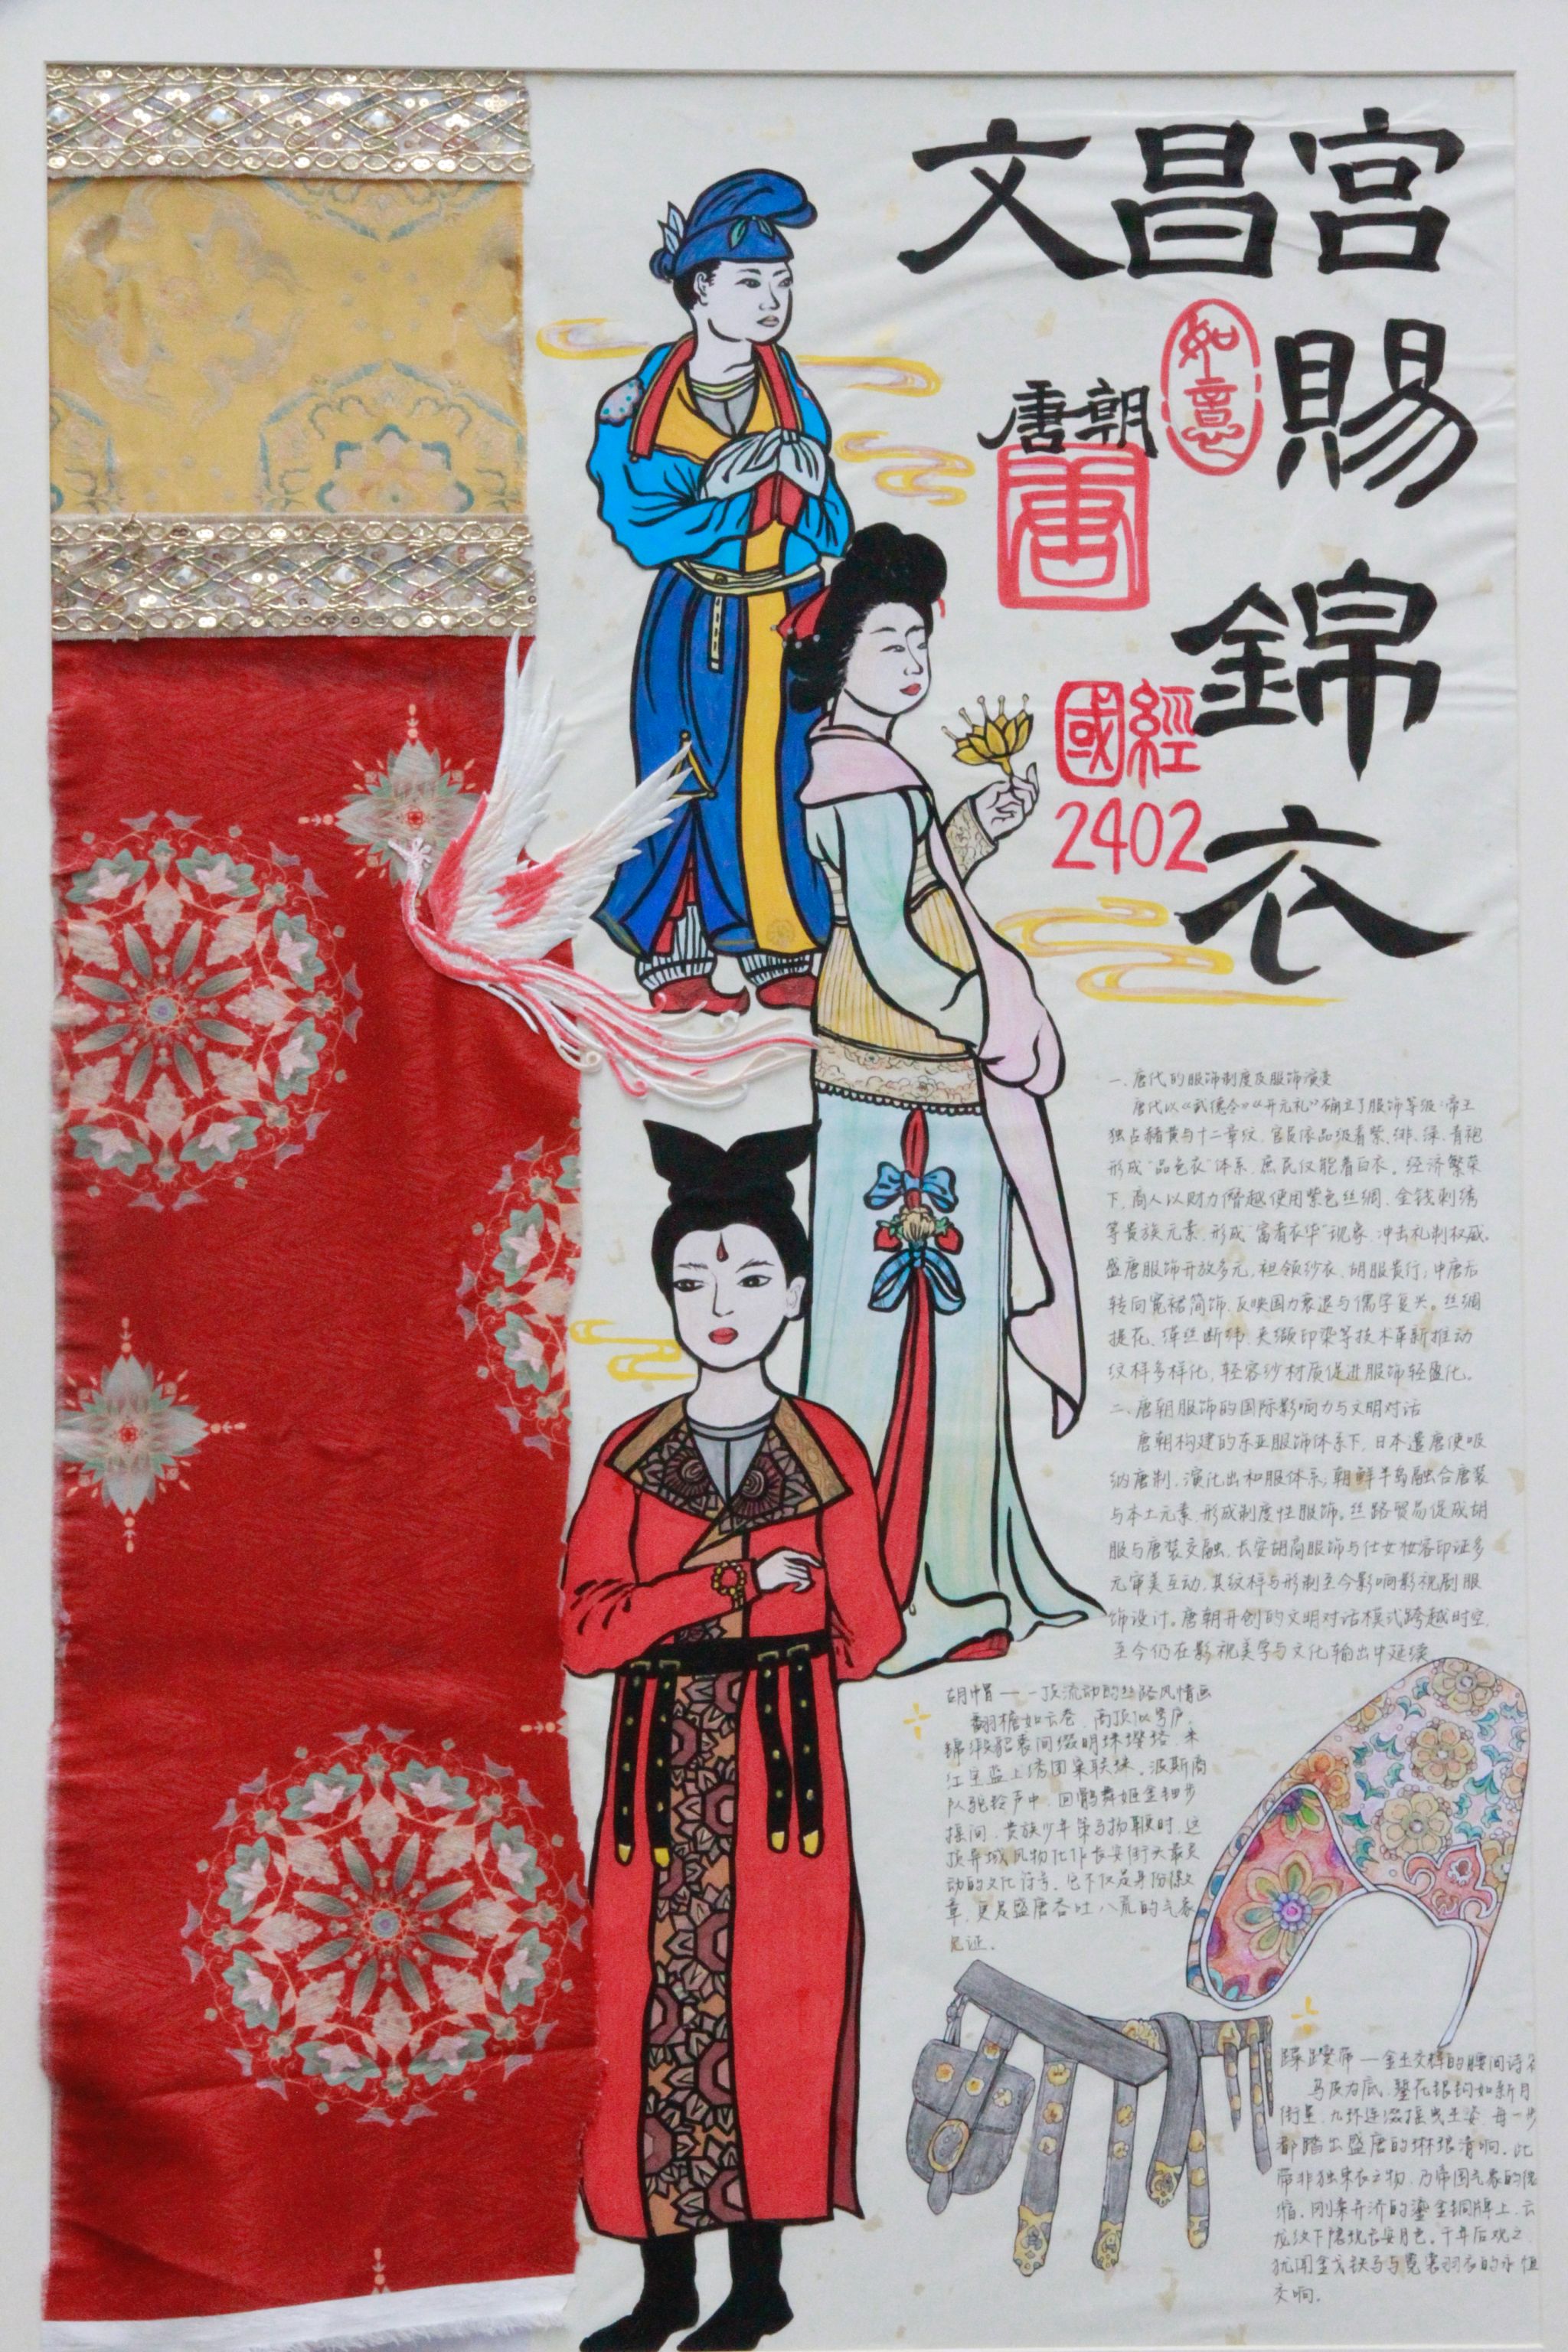 文昌宫
賜
錦
衣
如意
唐朝
唐
國經
2402
一.唐代的服饰制度及服饰演变
唐代以《武德令》《开元礼》确立了服饰等级:帝王
独占赭黄与十二章纹,官员依品级着紫、绯、绿、青袍
形成“品色衣”体系,庶民仅能着白衣。经济繁荣
下,商人以财力僭越使用紫色丝绸、金钱刺绣
等贵族元素,形成“富者衣华”现象,冲击礼制权威。
盛唐服饰开放多元,袒领纱衣、胡服盛行;中唐后
转向宽裙简饰,反映国力衰退与儒学复兴。丝绸
提花、缂丝断纬、夹缬印染等技术革新推动
纹样多样化,轻容纱材质促进服饰轻盈化。
二.唐朝服饰的国际影响力与文明对话
唐朝构建的东亚服饰体系下,日本遣唐使吸
纳唐制,演化出和服体系;朝鲜半岛融合唐装
与本土元素,形成制度性服饰。丝路贸易促成胡
服与唐装交融,长安胡商服饰与仕女妆容印证多
元审美互动,其纹样与形制至今影响影视剧服
饰设计。唐朝开创的文明对话模式跨越时空,
至今仍在影视美学与文化输出中延续
胡帽——一顶流动的丝路风情画
翻檐如云卷,高顶似穹庐,
锦缎貂裘间缀明珠璎珞,朱
红宝蓝上绣团窠联珠。波斯商
队驼铃声中,回鹘舞姬金钿步
摇间,贵族少年策马扬鞭时,这
顶异域风物化作长安街头最灵
动的文化符号。它不仅是身份徽
章,更是盛唐吞吐八荒的气象
见证。
蹀躞带—金玉交辉的腰间诗
乌皮为底,錾花银钩如新月
衔星,九环连缀摇曳生姿,每一步
都踏出盛唐的琳琅清响。此
带非独束衣之物,乃帝国气象的
缩。刚柔并济的鎏金铜牌上,云
龙纹下隐现长安月色。千年后观之
犹闻金戈铁马与霓裳羽衣的永恒
交响。